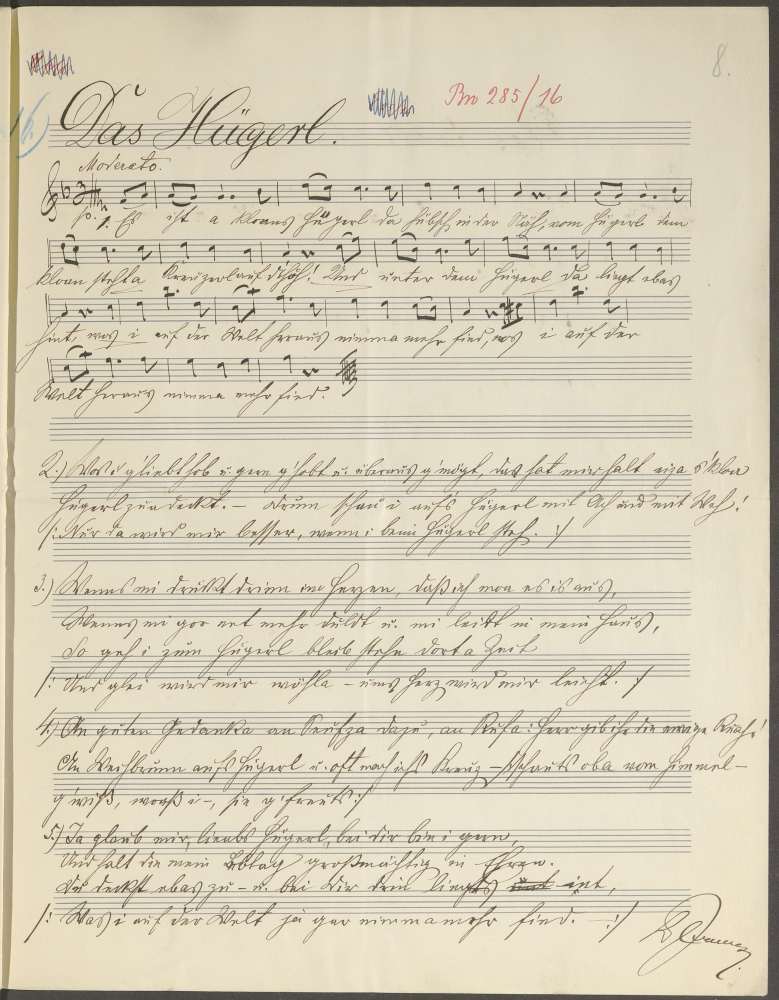 8.
Bn 285/16
16)
Das Hügerl.
Moderato.
p. 1. Es ist a kloans Hügerl da hübsch in der Näh, vom Hügerl dem
kloan steht a Kreuzerl auf d'Höh! Und unter dem Hügerl da liegt ebas
hint, was i auf der Welt heraus nimma mehr find, was i auf der
Welt heraus nimma mehr find.
2.) Was i g'liebt hob u. gern g'habt u. überaus g'mögt, das hat mir halt eiza s'kloa
Hügerl zua deckt. – Drum schau i auf's Hügerl mit Ach und mit Weh!
/: Nur da wird mir besser, wenn i beim Hügerl steh. :/
3.) Wenns mi druckt drinn im Herzen, daß ich moa es is aus,
Wenns mi gor net mehr duldt u. mi leidt in mein Haus,
So geh i zum Hügerl bleib stehn dort a Zeit
/: Und glei wird mir wohla – ums Herz wird mir leicht. :/
4.) An guten Gedanka an Seufza dazu, an Rufa: Herr gib ihr die ewige Ruah!
An Weihbrunn aufs Hügerl u. oft mach ichs Kreuz – schauts oba vom Himmel –
g'wiß, woaß i –, sie g'freuts :/
5.) Ja glaub mir, liabs Hügerl, bei dir bin i gern,
Und halt die mein Lebtag großmächtig in Ehren.
Du deckst ebas zu – u. bei dir drin liegts int,
/: Was i auf der Welt ja gar nimma mehr find. – :/